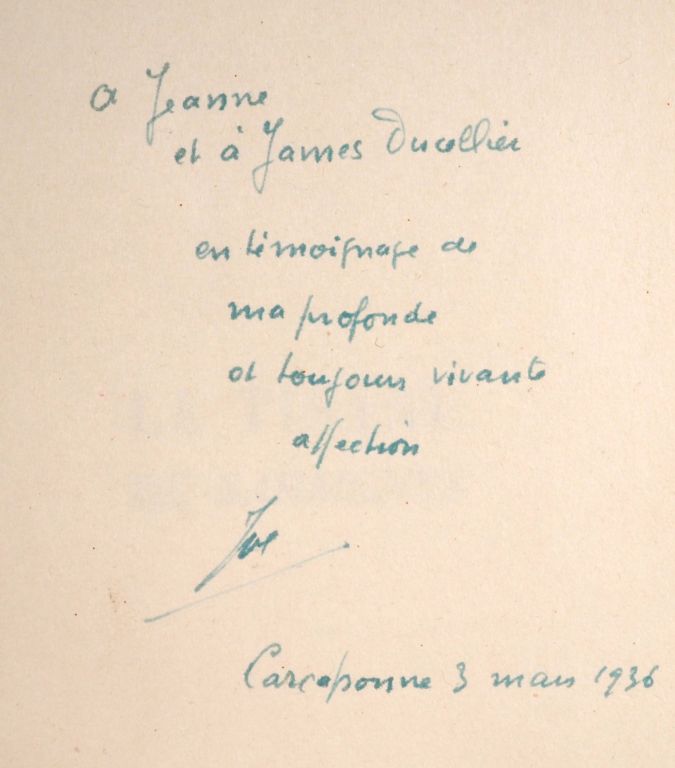 a Jeanne
et à James Ducellier
en témoignage de
ma profonde
et toujours vivante
affection
Joe
Carcassonne 3 mars 1936